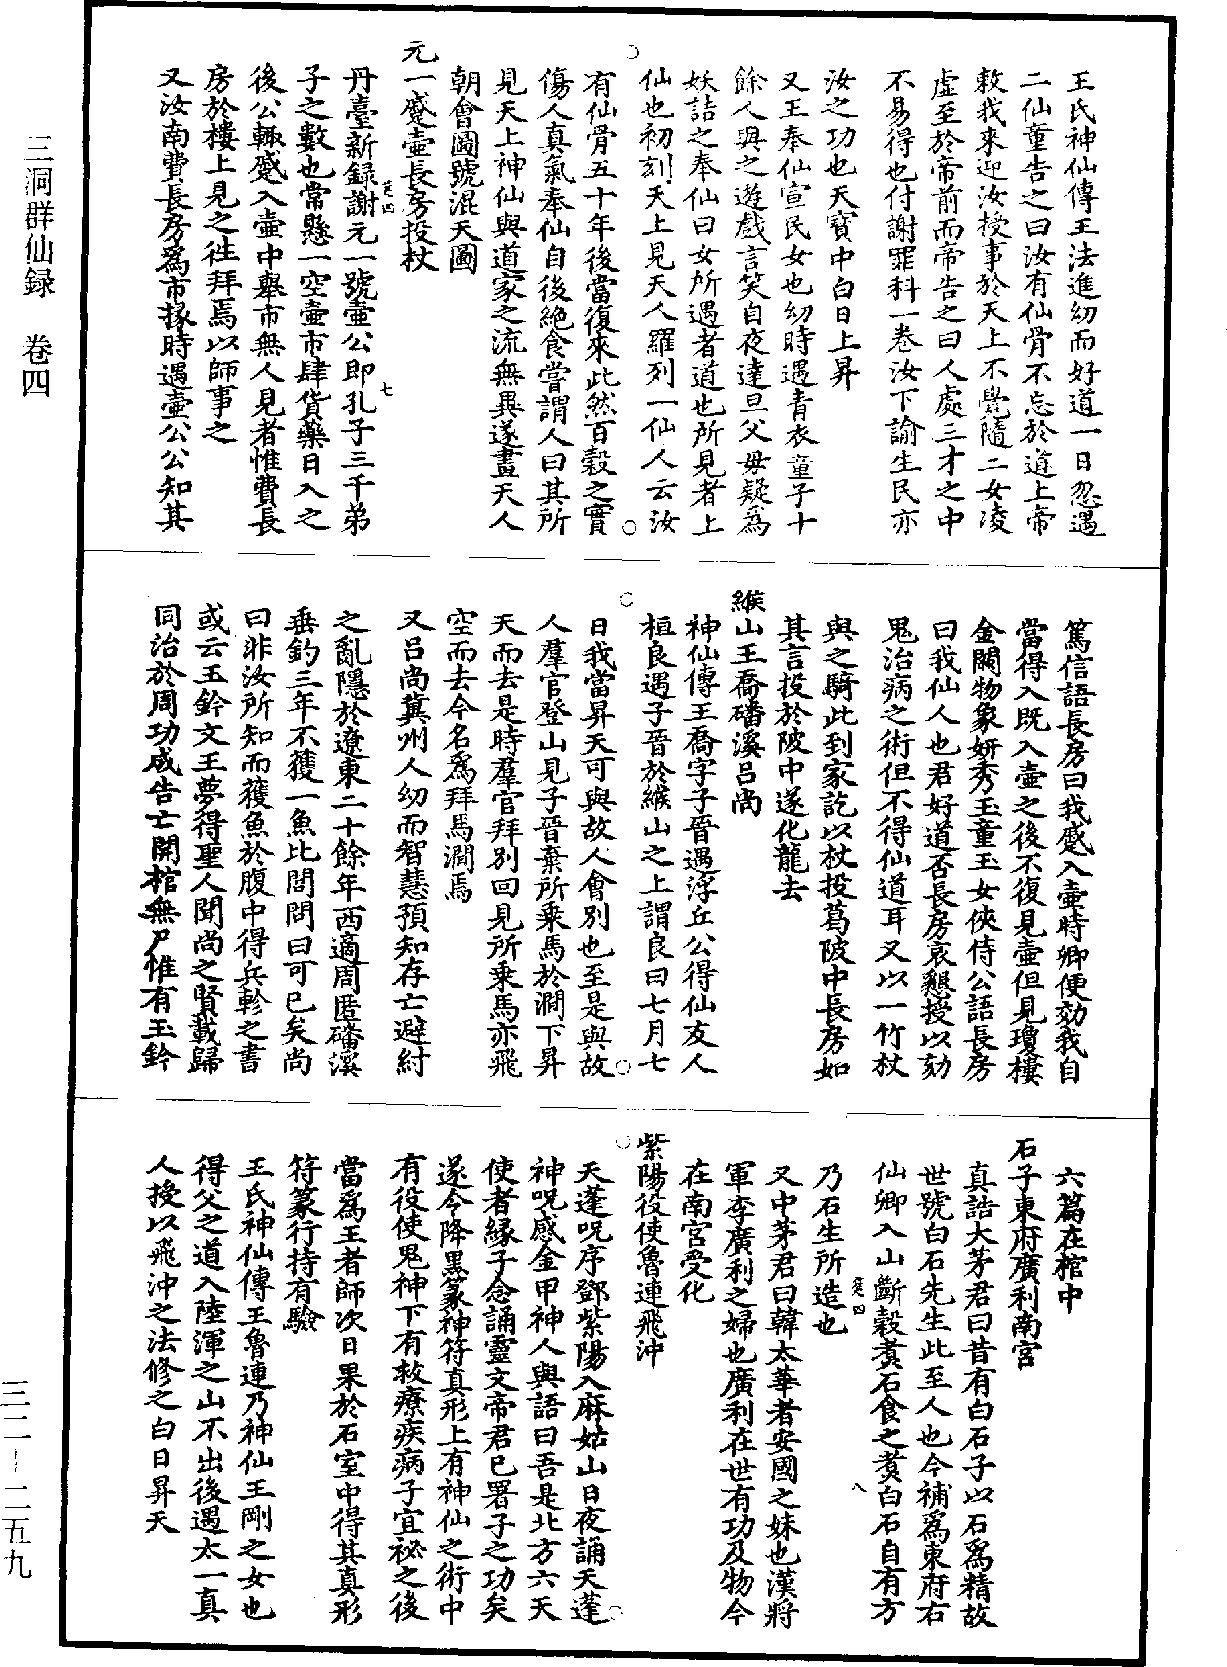 王氏神仙傳王法進幼而好道一日忽遇
二仙童告之曰汝有仙骨不忘於道上帝
敕我來迎汝授事於天上不覺隨二女凌
虛至於帝前而帝告之曰人處三才之中
不易得也付謝罪科一卷汝下諭生民亦
汝之功也天寶中白日上昇
又王奉仙宣民女也幼時遇青衣童子十
餘人與之遊戲言笑自夜達旦父母疑爲
妖詰之奉仙曰女所遇者道也所見者上
仙也初刻天上見天人羅列一仙人云汝
有仙骨五十年後當復來此然百穀之實
傷人真氣奉仙自後絶食嘗謂人曰其所
見天上神仙與道家之流無異遂畫天人
朝會圖號混天圖
元一蹙壺長房投杖
丹臺新録謝元一號壺公即孔子三千弟
子之數也常懸一空壺市肆貨藥日入之
後公輙蹙入壺中舉市無人見者惟費長
房於樓上見之徃拜焉以師事之
又汝南費長房爲市掾時遇壺公公知其
篤信語長房曰我蹙入壺時卿便効我自
當得入既入壺之後不復見壺但見瓊樓
金闕物象妍秀玉童玉女俠侍公語長房
曰我仙人也君好道否長房哀懇授以劾
鬼治病之術但不得仙道耳又以一竹杖
與之騎此到家訖以杖投葛陂中長房如
其言投於陂中遂化龍去
緱山王喬磻溪呂尚
神仙傳王喬字子晉遇浮丘公得仙友人
桓良遇子晉於緱山之上謂良曰七月七
日我當昇天可與故人會別也至是與故
人羣官登山見子晉棄所乘馬於澗下昇
天而去是時羣官拜別回見所乘馬亦飛
空而去今名爲拜馬澗焉
又呂尚冀州人幼而智慧預知存亡避紂
之亂隱於遼東二十餘年西適周匿磻溪
垂釣三年不獲一魚比閭問曰可已矣尚
曰非汝所知而獲魚於腹中得兵鈐之書
或云玉鈐文王夢得聖人聞尚之賢載歸
同治於周功成告亡開棺無尸惟有玉鈐
六篇在棺中
石子東府廣利南宮
真誥大茅君曰昔有白石子以石爲精故
世號白石先生此至人也今補爲東府右
仙卿入山斷穀煑石食之煑白石自有方
乃石生所造也
又中茅君曰韓太華者安國之妹也漢將
軍李廣利之婦也廣利在世有功及物今
在南宮受化
紫陽役使魯連飛沖
天蓬呪序鄧紫陽入麻姑山日夜誦天蓬
神呪感金甲神人與語曰吾是北方六天
使者縁子念誦靈文帝君已署子之功矣
遂令降黑篆神符真形上有神仙之術中
有役使鬼神下有救療疾病子宜祕之後
當爲王者師次日果於石室中得其真形
符篆行持有驗
王氏神仙傳王魯連乃神仙王剛之女也
得父之道入陸渾之山不出後遇太一真
人授以飛沖之法修之白日昇天
三洞群仙録　卷四
三二－二五九
七
八